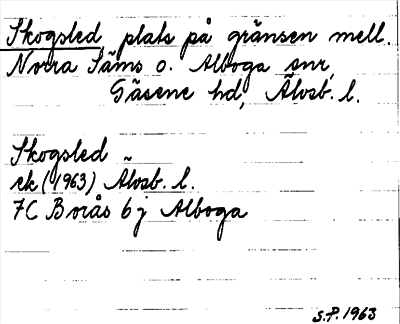 Skogsled, plats på gränsen mell.
Norra Säms o. Alboga snr,
Gäsene hd, Älvsb. l.
Skogsled
ek (1963) Älvsb. l.
7C Borås 6j Alboga
S.P. 1963